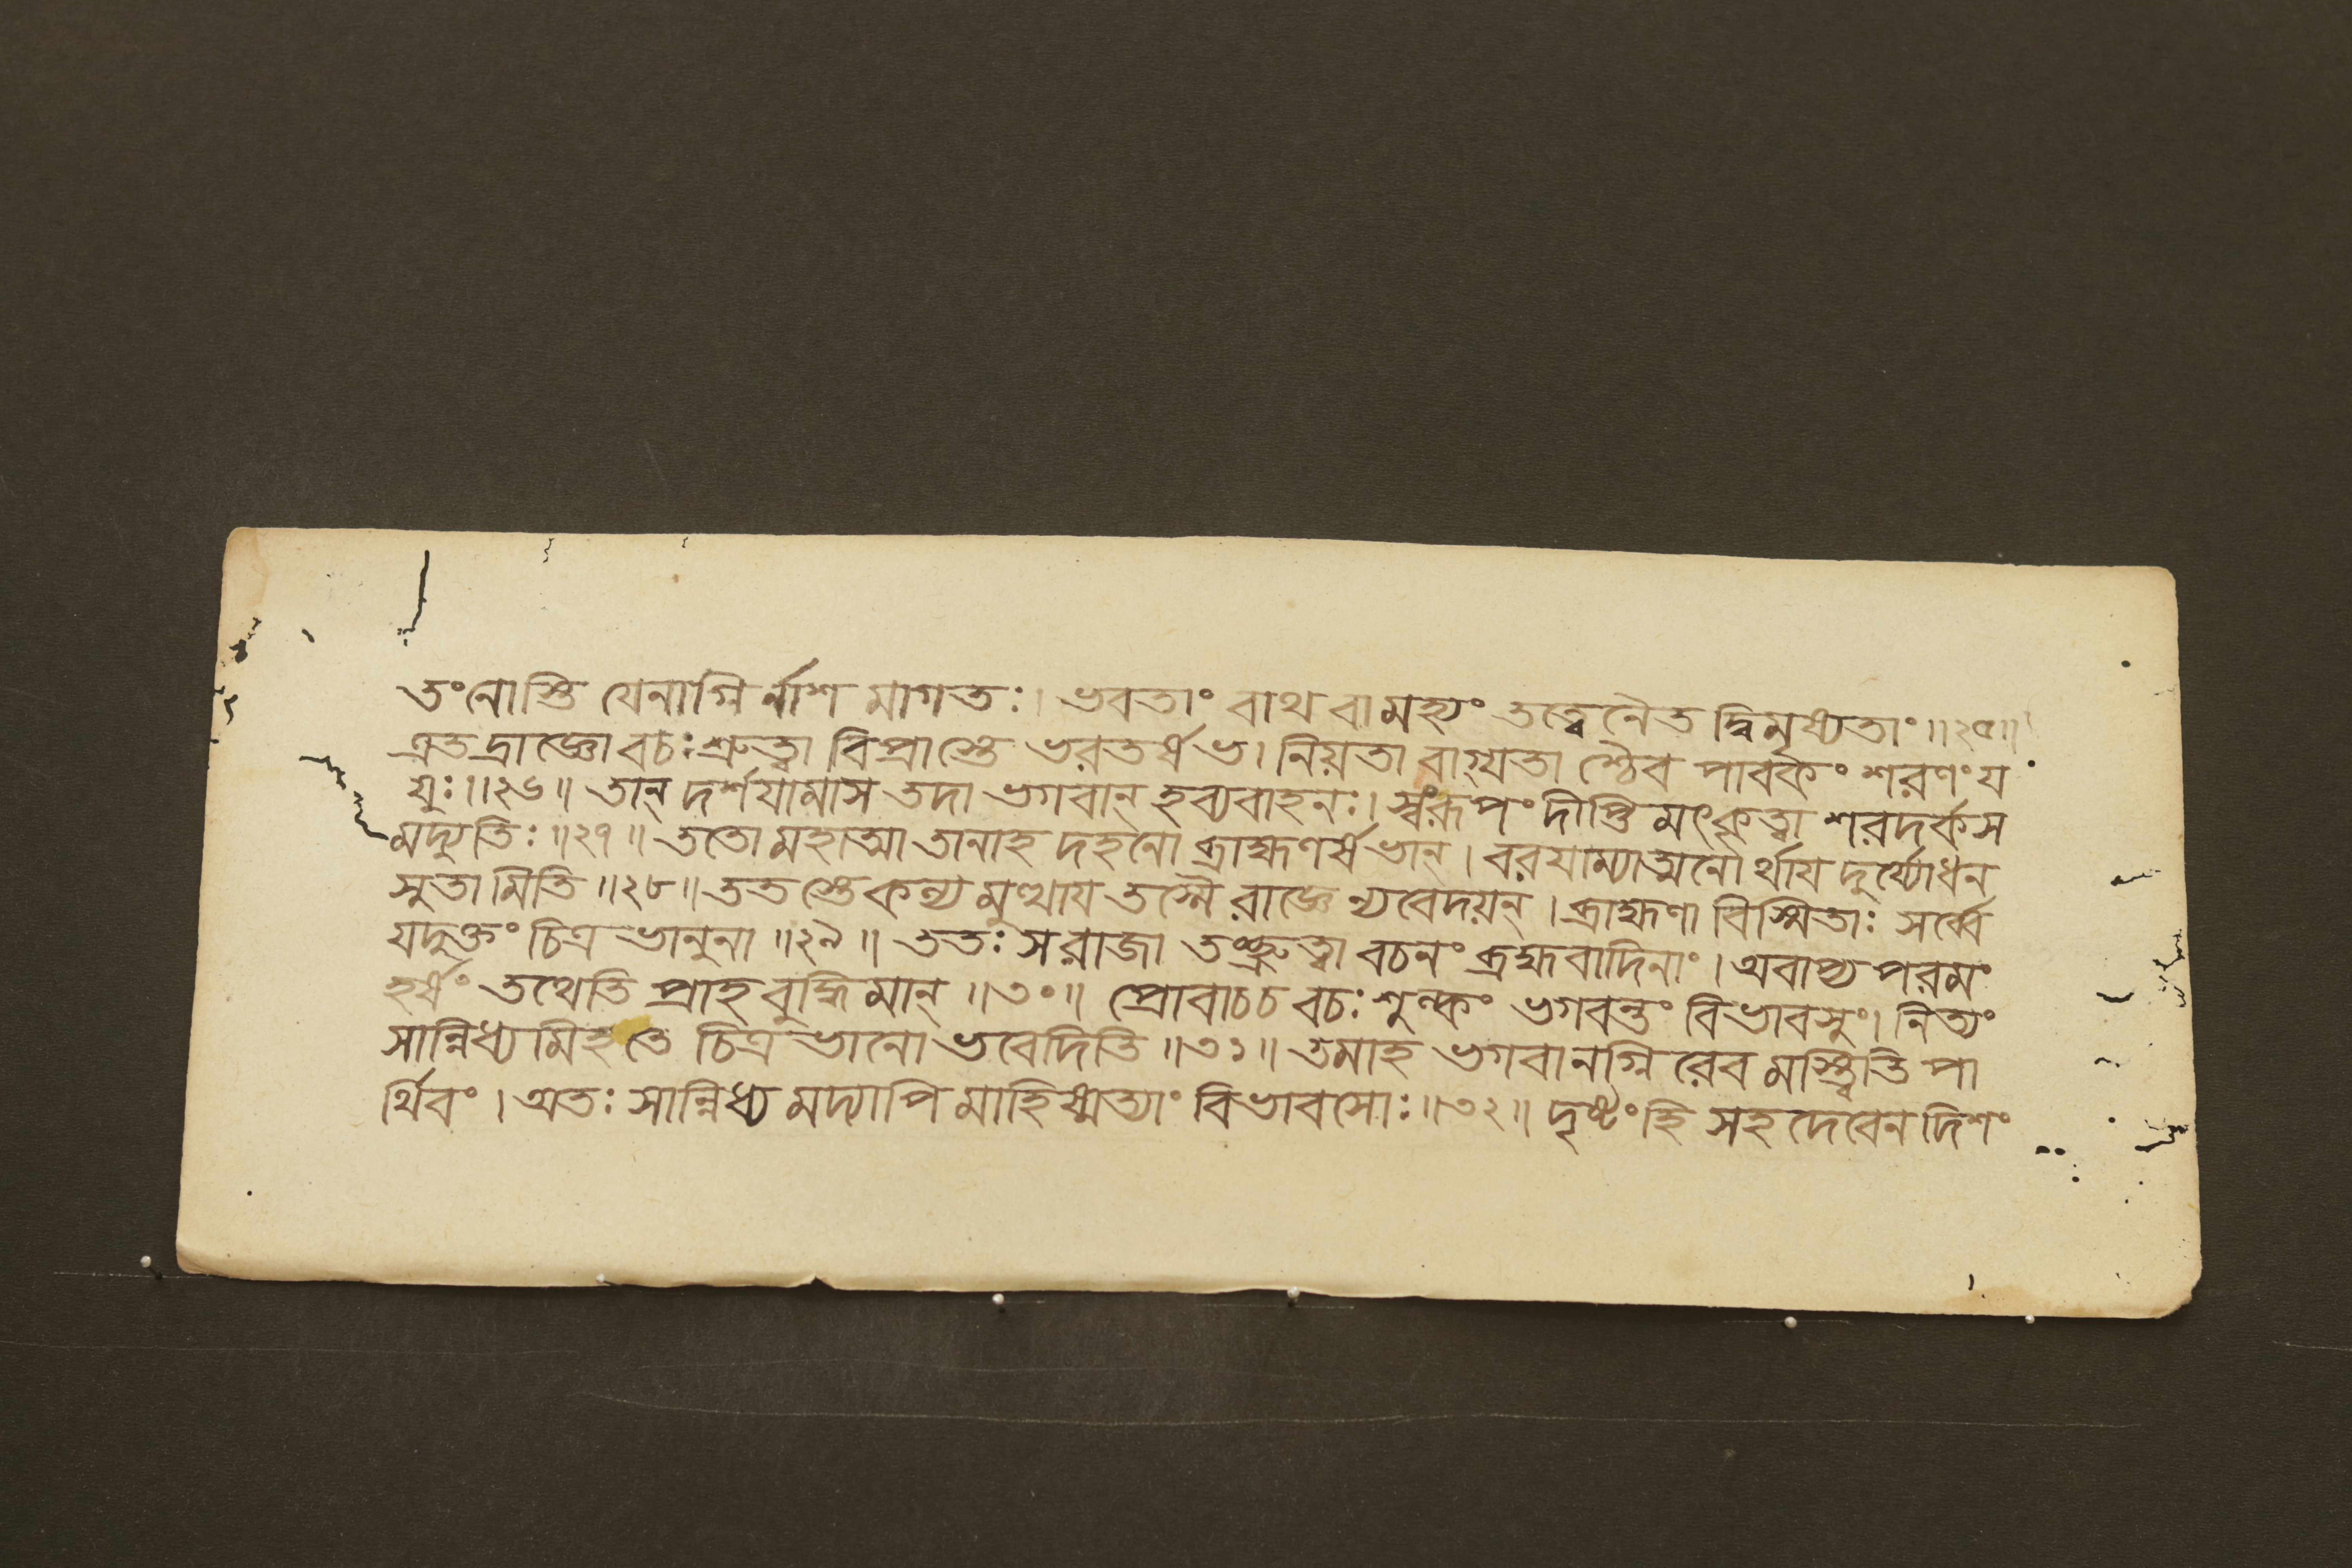 তংনোস্তি যেনাগ্নির্নাশ মাগতঃ। ভবতাং বাথ বামহ্যং তত্ত্বেনৈত দ্বিমৃষ্যতাং॥২৫॥
এতদ্রাজ্ঞোবচঃশ্রুত্বা বিপ্রাস্তে ভরতর্ষভ। নিয়তা বাগ্যতা শ্চৈব পাবকং শরণংয
যুঃ॥২৬॥ তান্ দর্শযামাস তদা ভগবান্ হব্যবাহনঃ। স্বংরূপং দীপ্তিমৎকৃত্বা শরদর্কস
মদ্যুতিঃ॥২৭॥ ততোমহাত্মা তানাহ দহনো ব্রাহ্মণর্ষভান্। বরযাম্যাত্মনোর্থায দুর্য্যোধন
সুতামিতি॥২৮॥ ততস্তেকল্য মুত্থায তস্মৈ রাজ্ঞেন্যবেদয়ন্। ব্রাহ্মণা বিস্মিতাঃ সর্ব্বে
যদুক্তং চিত্রভানুনা॥২৯॥ ততঃ সরাজা তৎশ্রুত্বা বচনং ব্রহ্মবাদিনাং। অবাপ্য পরমং
হর্ষং তথেতি প্রাহ বুদ্ধিমান্॥৩০॥ প্রোবাচচ বচঃ শুল্কং ভগবন্তং বিভাবসুং। নিত্যং
সান্নিধ্যমিহতে চিত্রভানো ভবেদিতি॥৩১॥ তমাহ ভগবানগ্নিরেব মস্ত্বিতি পা
র্থিবং। অতঃ সান্নিধ্য মদ্যাপি মাহিষ্মত্যাং বিভাবসোঃ॥৩২॥ দৃষ্টংহি সহদেবেন দিশং